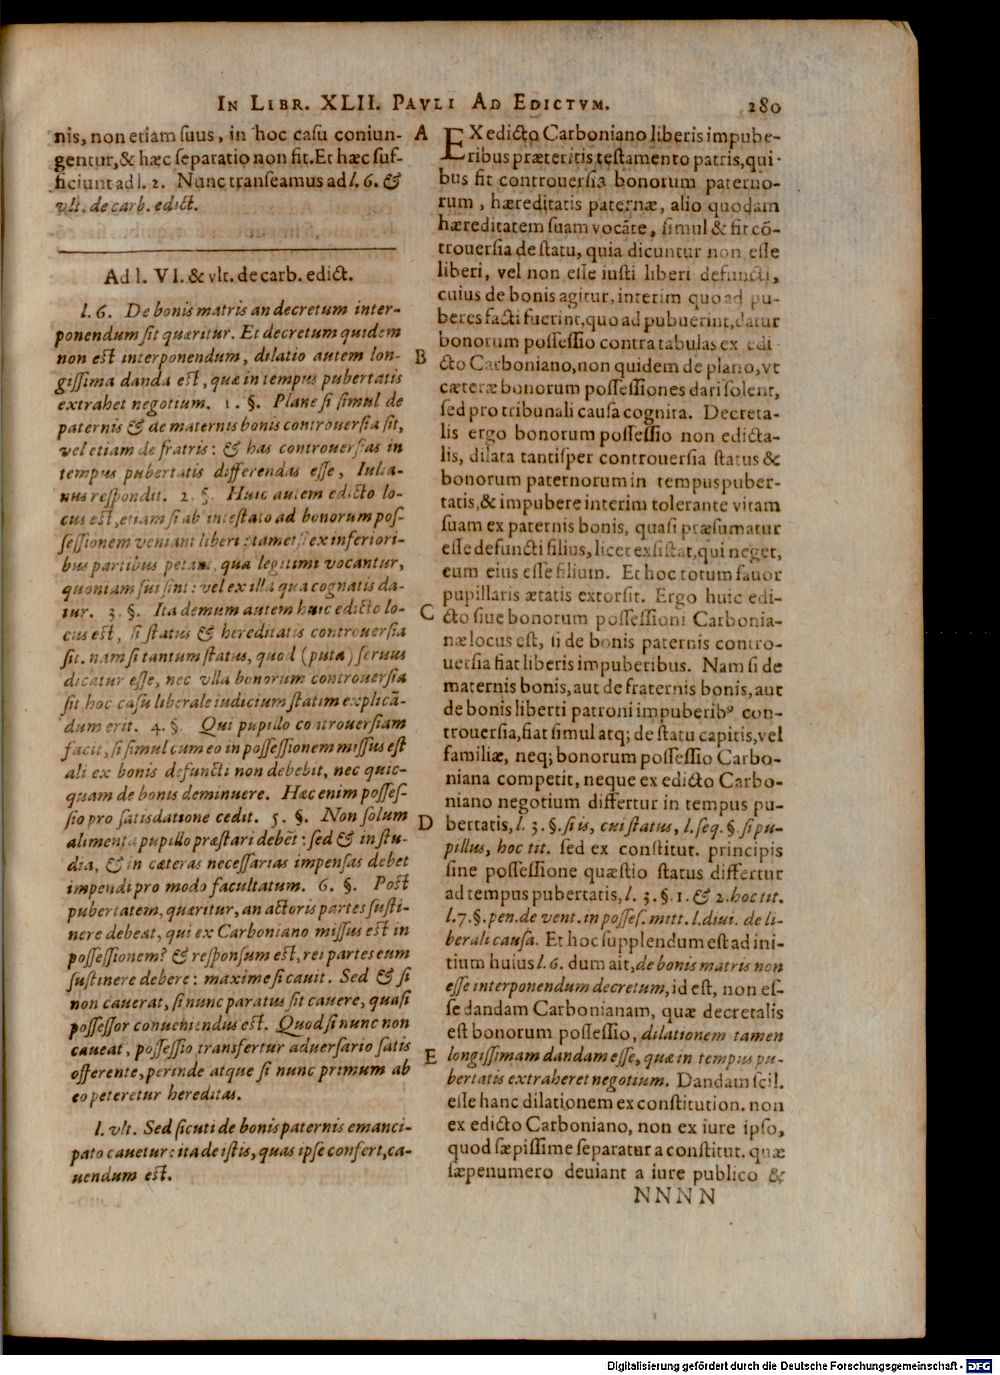 IN LIBR. XLII. PAVLI AD EDICTVM. 280
nis, non etiam suus, in hoc casu coniun-
gentur, & hæc separatio non fit. Et hæc suf-
ficiunt ad l. 2. Nunc transeamus ad l. 6. &
vlt. de carb. edict.
Ad l. VI. & vlt. de carb. edict.
l. 6. De bonis matris an decretum inter-
ponendum sit quæritur. Et decretum quidem
non est interponendum, dilatio autem lon-
gissima danda est, quæ in tempus pubertatis
extrahet negotium. 1. §. Plane si simul de
paternis & de maternis bonis controuersia sit,
vel etiam de fratris: & has controuersias in
tempus pubertatis differendas esse, Iulia-
nus respondit. 2. §. Huic autem edicto lo-
cus est, etiam si ab intestato ad bonorum pos-
sessionem veniant liberi: tametsi ex inferiori-
bus partibus petant, qua legitimi vocantur,
quoniam sui sint: vel ex illa qua cognatis da-
tur. 3. §. Ita demum autem huic edicto lo-
cus est, si status & hereditatis controuersia
sit. nam si tantum status, quod (puta) seruus
dicatur esse, nec vlla bonorum controuersia
sit hoc casu liberale iudicium statim explicā-
dum erit. 4. §. Qui pupillo controuersiam
facit, si simul cum eo in possessionem missus est
ali ex bonis defuncti non debebit, nec quic-
quam de bonis deminuere. Hæc enim posses-
sio pro satisdatione cedit. 5. §. Non solum
alimenta pupillo præstari debēt: sed & in stu-
dia, & in cæteras necessarias impensas debet
impendi pro modo facultatum. 6. §. Post
pubertatem, quæritur, an actoris partes susti-
nere debeat, qui ex Carboniano missus est in
possessionem? & responsum est, rei partes eum
sustinere debere: maxime si cauit. Sed & si
non cauerat, si nunc paratus sit cauere, quasi
possessor conueniendus est. Quod si nunc non
caueat, possessio transfertur aduersario satis
offerente, perinde atque si nunc primum ab
eo peteretur hereditas.
l. vlt. Sed sicuti de bonis paternis emanci-
pato cauetur: ita de istis, quas ipse confert, ca-
uendum est.
A EX edicto Carboniano liberis impube-
ribus præteritis testamento patris, qui-
bus fit controuersia bonorum paterno-
rum, hæreditatis paternæ, alio quodam
hæreditatem suam vocāte, simul & fit cō-
trouersia de statu, quia dicuntur non esse
liberi, vel non esse iusti liberi defuncti,
cuius de bonis agitur, interim quoad pu-
beres facti fuerint, quoad pubuerint, datur
bonorum possessio contra tabulas ex edi-
B cto Carboniano, non quidem de plano, vt
cæteræ bonorum possessiones dari solent,
sed pro tribunali causa cognita. Decreta-
lis ergo bonorum possessio non edicta-
lis, dilata tantisper controuersia status &
bonorum paternorum in tempus puber-
tatis, & impubere interim tolerante vitam
suam ex paternis bonis, quasi præsumatur
esse defuncti filius, licet existat, qui neget,
eum eius esse filium. Et hoc totum fauor
pupillaris ætatis extorsit. Ergo huic edi-
C cto siue bonorum possessioni Carbonia-
næ locus est, si de bonis paternis contro-
uersia fiat liberis impuberibus. Nam si de
maternis bonis, aut de fraternis bonis, aut
de bonis liberti patroni impuberibꝰ con-
trouersia, fiat simul atq; de statu capitis, vel
familiæ, neq; bonorum possessio Carbo-
niana competit, neque ex edicto Carbo-
niano negotium differtur in tempus pu-
D bertatis, l. 3. §. si is, cui status, l. seq. §. si pu-
pillus, hoc tit. sed ex constitut. principis
sine possessione quæstio status differtur
ad tempus pubertatis, l. 3. §. 1. & 2. hoc tit.
l. 7. §. pen. de vent. in posses. mitt. l. diui. de li-
berali causa. Et hoc supplendum est ad ini-
tium huius l. 6. dum ait, de bonis matris non
esse interponendum decretum, id est, non es-
se dandam Carbonianam, quæ decretalis
est bonorum possessio, dilationem tamen
E longissimam dandam esse, quæ in tempus pu-
bertatis extraheret negotium. Dandam scil.
esse hanc dilationem ex constitution. non
ex edicto Carboniano, non ex iure ipso,
quod sæpissime separatur a constitut. quæ
sæpenumero deuiant a iure publico &
NNNN
Digitalisierung gefördert durch die Deutsche Forschungsgemeinschaft - DFG